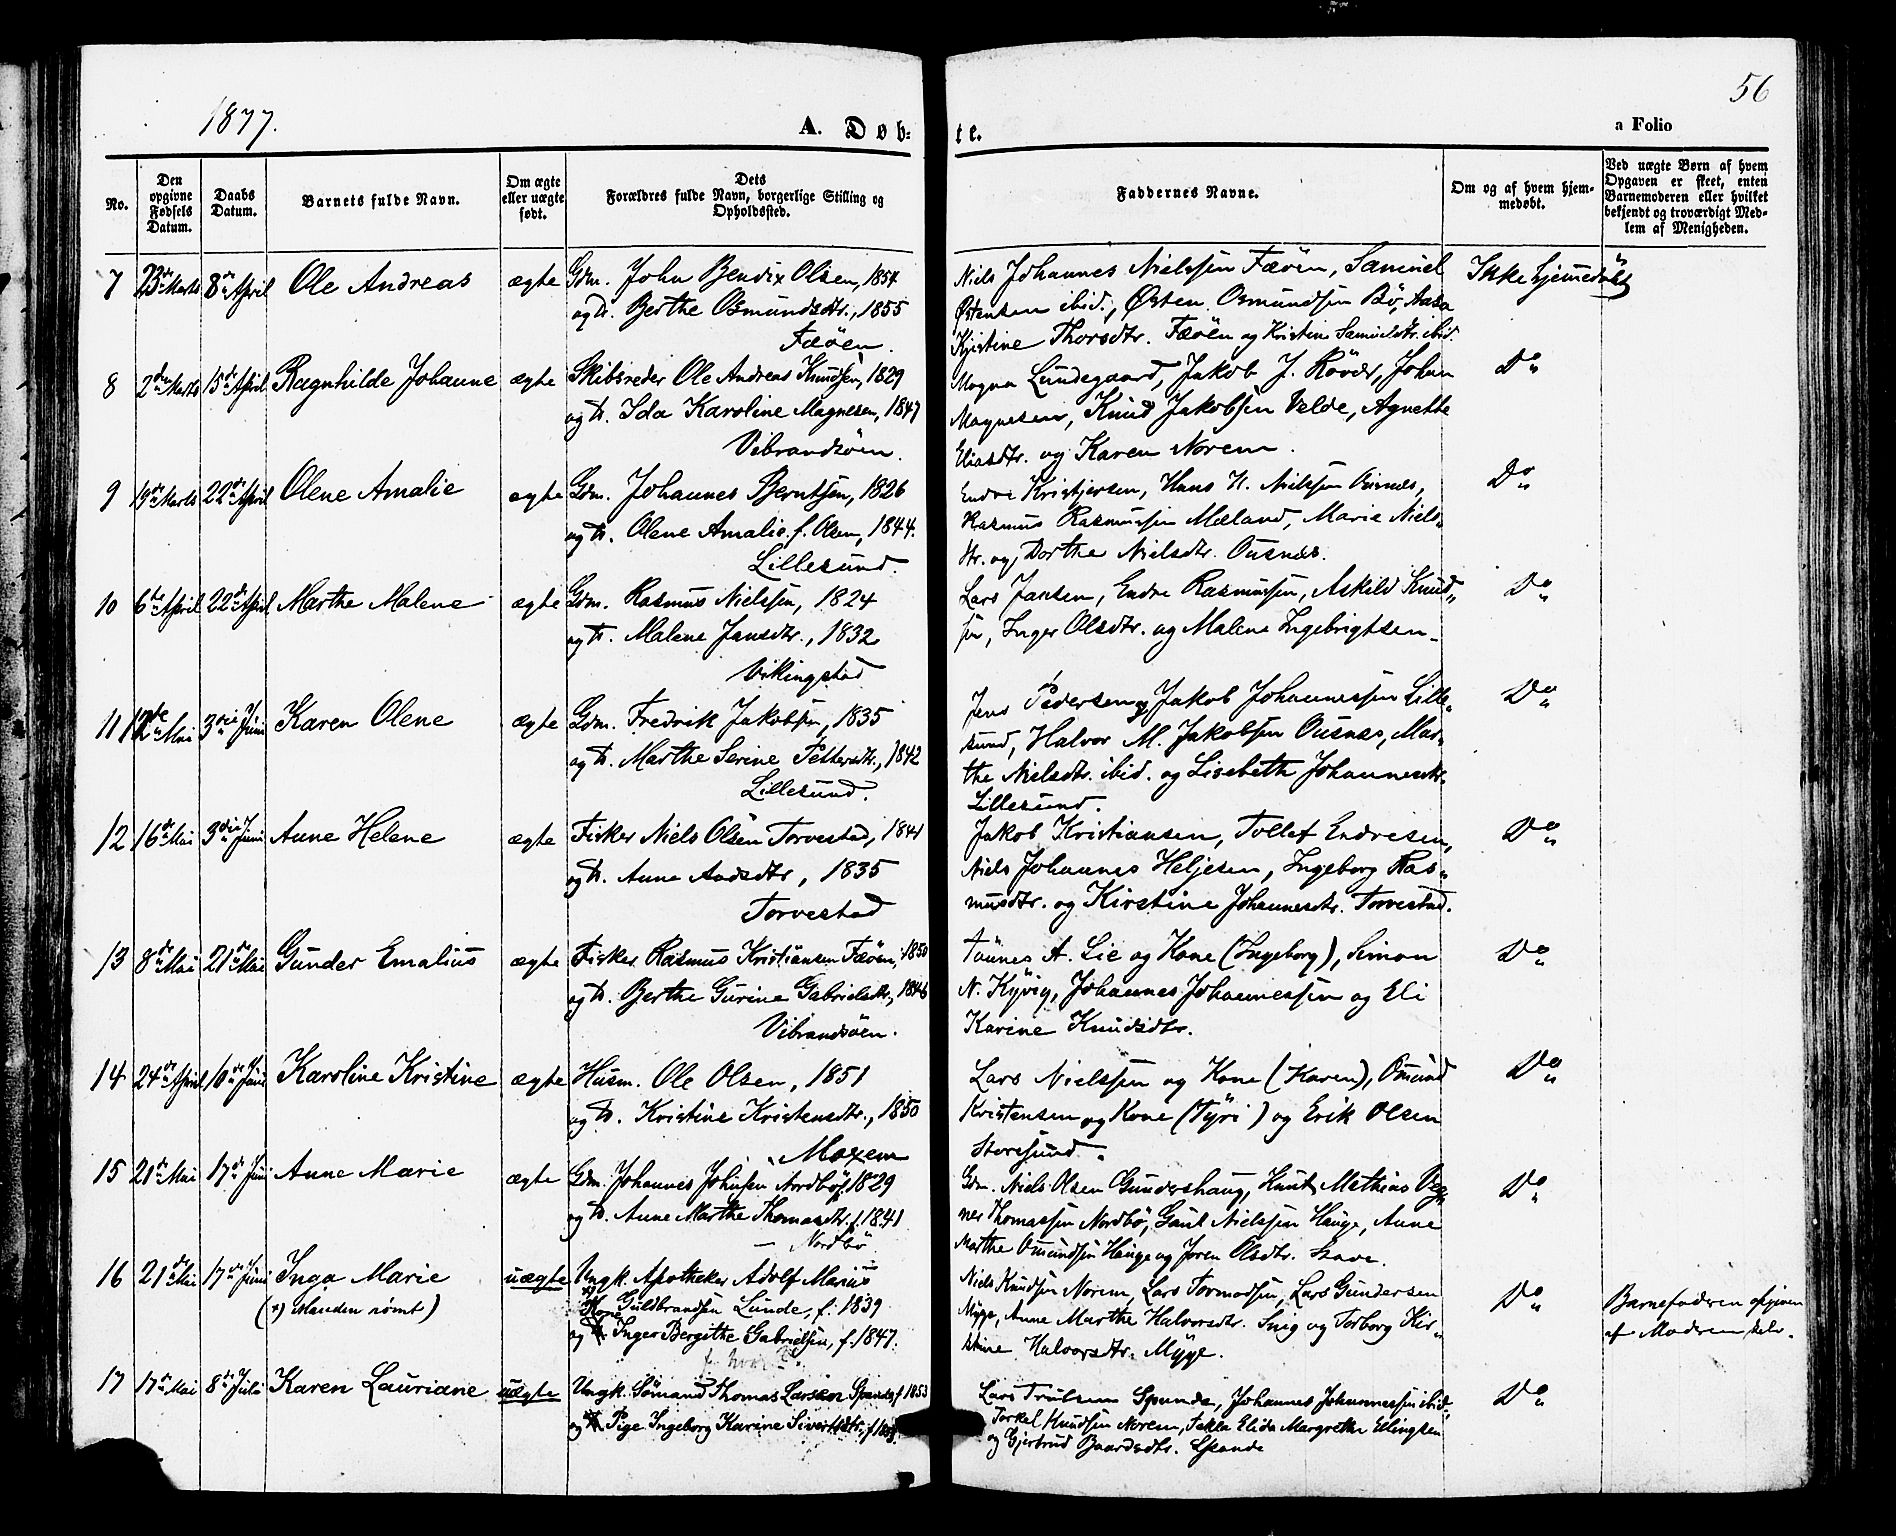 56
1877.
A. Døb-
te.
a Folio
No.
Den opgivne Fødsels Datum.
Daabs Datum.
Barnets fulde Navn.
Om ægte eller uægte født.
Dets Forældres fulde Navn, borgerlige Stilling og Opholdssted.
Faddernes Navne.
Om og af hvem hjemmedøbt.
Ved uægte Børn af hvem Opgaven er skeet, enten Barnemoderen eller hvilket bekjendt og troværdigt Medlem af Menigheden.
7 23de Marts 8de April Ole Andreas ægte Gdm. John Bendix Olsen, 1854 Niels Johannes Nielssen Fæöen, Samuel Ikke hjemedøbt
og H. Berthe Osmundsdtr., 1855 Østensen ibid., Østen Osmundsen Bö, Aasa
Fæöen. Kjistine Thorsdtr. Fæöen og Kristine Samuelsdtr. ibid.
8 2den Marts 15de April Ragnhilde Johanne ægte Skibsreder Ole Andreas Knudsen, 1829 Magna Lundegaard, Jakob J. Rövær, Johan Do
og H. Ida Karoline Magnesen, 1847 Magnesen, Knud Jakobsen Velde, Agnethe
Vibrandsöen. Eliasdtr. og Karen Norem.
9 19de Marts 22de April Olene Amalie ægte Gdm. Johannes Berntsen, 1826 Endre Kristjersen, Hans H. Nielssen Ousnæs, Do
og H. Olene Amalie f. Olsen, 1844. Rasmus Rasmussen Mæland, Marie Niels-
Lillesund. dtr. og Dorthe Nielsdtr. Ousnæs.
10 6te April 22de April Marthe Malene ægte Gdm. Rasmus Nielssen, 1824 Lars Jansen, Endre Rasmussen, Askild Knud- Do
og H. Malene Jansdtr., 1832 sen, Inger Olsdtr. og Malene Ingebrigtsen
Vikingstad
11 12te Mai 3die Juni Karen Olene ægte Gdm. Fredrik Jakobsen, 1835 Jens Pedersen og Jakob Johannessen Lille- Do
og H. Marthe Serine Pettersdtr., 1842 sund, Halvor M. Jakobsen Ousnæs, Mar-
Lillesund. the Nielsdtr. ibid. og Lisebeth Johannesdtr.
Lillesund.
12 16de Mai 3die Juni Anne Helene ægte Fisker Niels Olsen Torvestad, 1841 Jakob Kristiansen, Tollef Endresen, Do
og H. Anne Aadsdtr, 1835 Niels Johannes Heljesen, Ingeborg Ras-
Torvestad musdtr. og Kirstine Johannesdtr. Torvestad.
13 8de Mai 21de Mai Gunder Emalius ægte Fisker Rasmus Kristiansen Fæöen, 1850 Tönnes A. Lie og Kone (Ingeborg), Simon Do
og H. Berthe Gurine Gabrielsdtr., 1846 N. Kyvig, Johannes Johannessen og Eli
Vibrandsöen. Karine Knudsdtr.
14 24de April 10de Juni Karoline Kristine ægte Husm. Ole Olsen, 1851 Lars Nielssen og Kone (Karen), Omund Do
og H. Kristine Kristensdtr., 1850 Kristensen og Kone (Tyri) og Erik Olsen
Moxem Storesund.
15 21de Mai 17de Juni Anne Marie ægte Gdm. Johannes Johnsen Nordbö f. 1829 Gdm. Niels Olsen Gundershaug, Knut Mathias Do
og H. Anne Marthe Thomasdtr. f. 1841 Thomassen Nordbö, Gaut Nielssen Hauge, Anne
Nordbö Marthe Omundsen Hauge og Joren Olsdtr.
16 21de Mai 17de Juni Inga Marie uægte Ungk. Apotheker Adolf Marius Niels Knudsen Norem, Lars Tormodsen, Lars Gundersen Do Barnefaderen opgiven
Guldbrandsen Lunde, f. 1839 Myge, Anne Marthe Halvorsdtr. og Torborg Kir- af Moderen selv.
og Kone Inger Bergithe Gabrielsen, f. 1847. stine Halvorsdtr. Myge.
17 17de Mai 8de Juli Karen Lauriane uægte Ungk. Sömand Thomas Larsen Spande f. 1853 Lars Trulssen Spande, Johannes Johannessen ibid., Do
og Pige Ingeborg Karine Sivertsdtr. Torkel Knudsen Norem, Tekla Elida Margrethe Ellingsen
og Gjertrud Baardsdtr. Spande